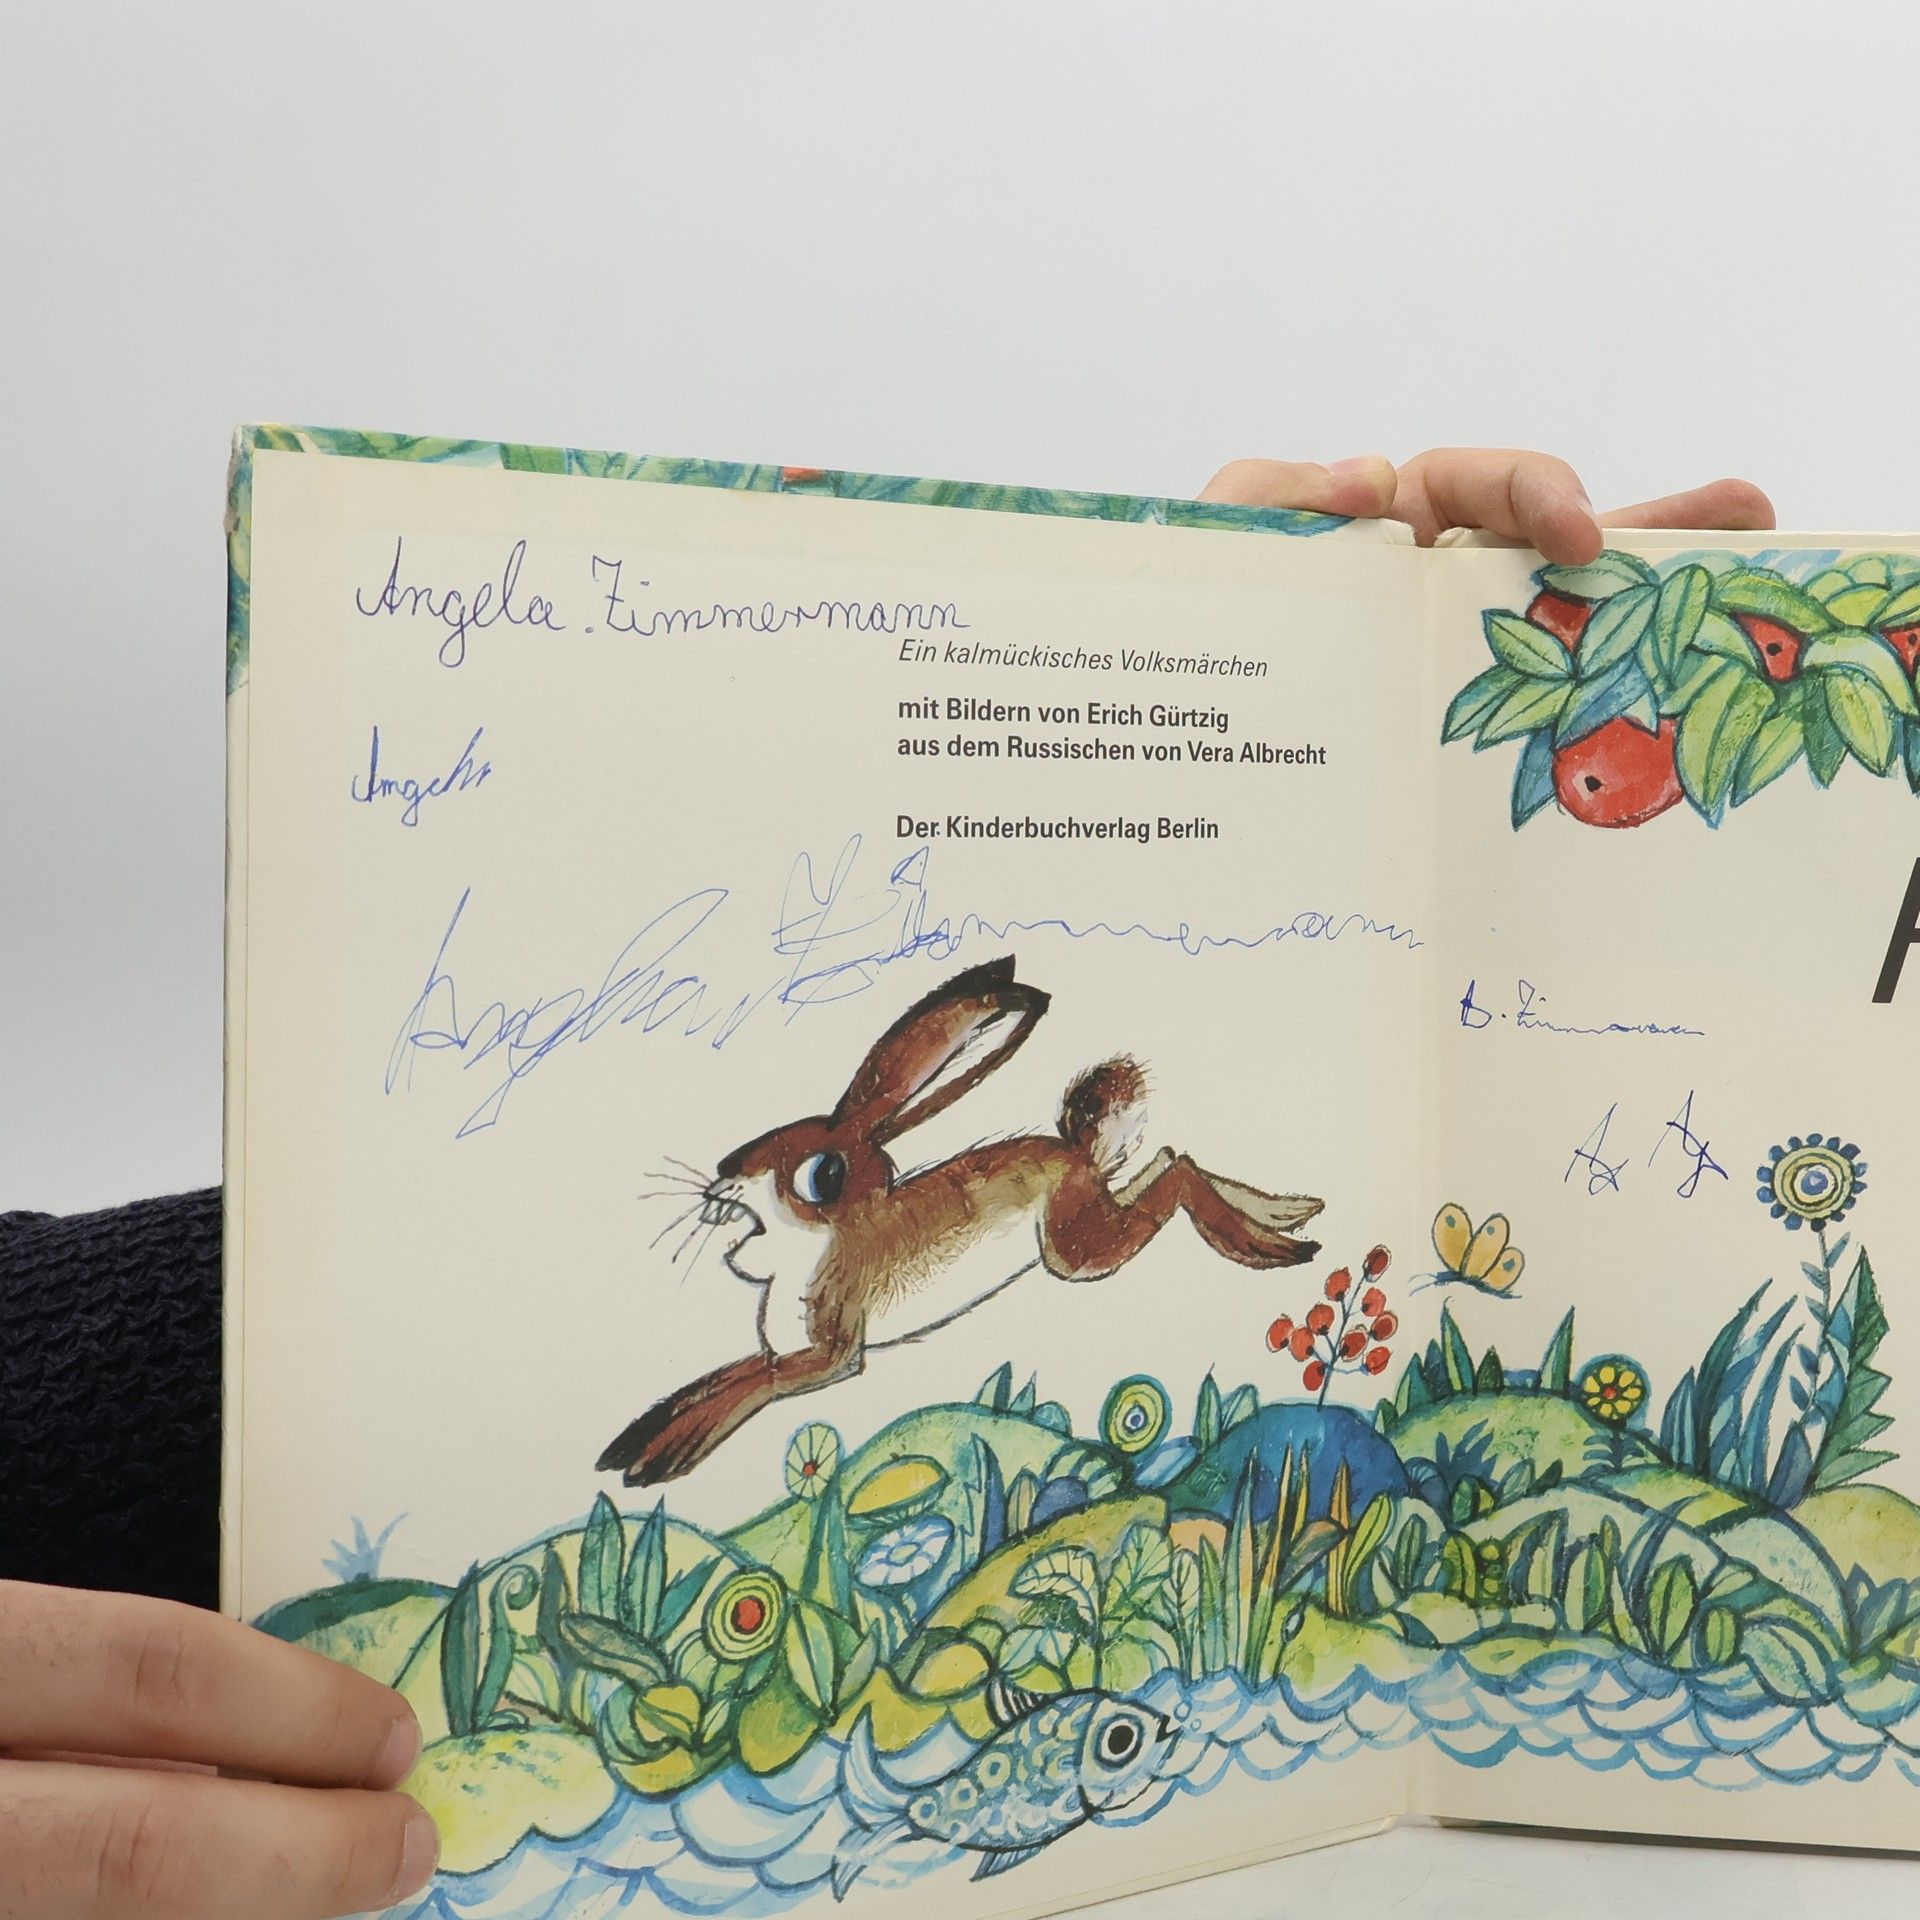 Angela Zimmermann
Ein kalmückisches Volksmärchen
mit Bildern von Erich Gürtzig
aus dem Russischen von Vera Albrecht
Der Kinderbuchverlag Berlin
Angela Zimmermann
A